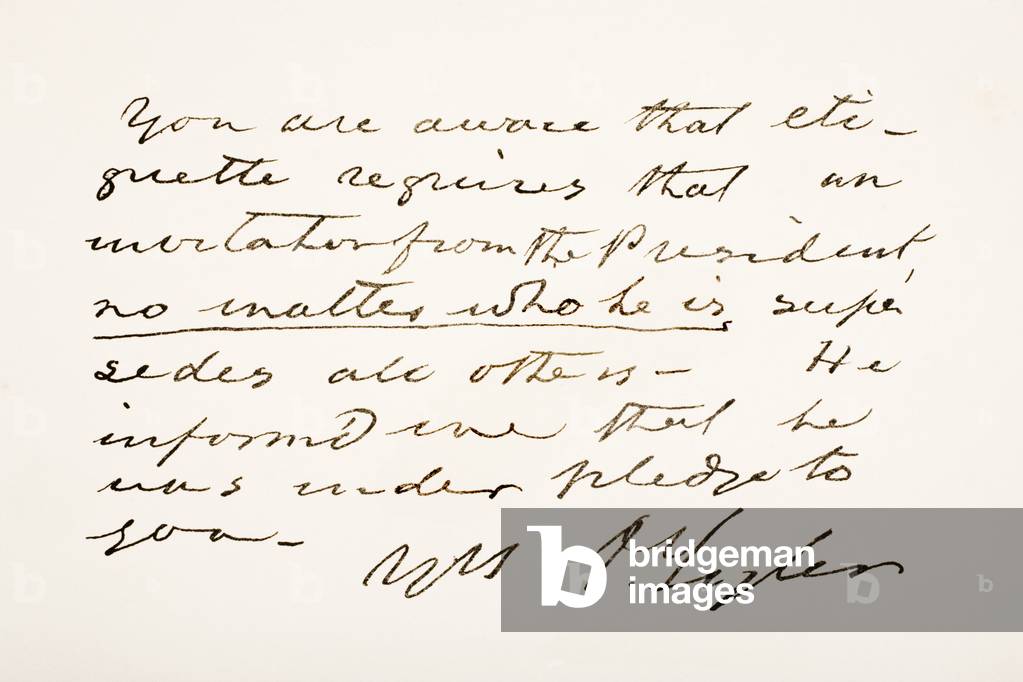 You are aware that eti-
quette requires that an
invitation from the President,
no matter who he is, super
sedes all others— He
inform'd me that he
was under pledge to
you—
Yrs J Tyler
bridgeman
images